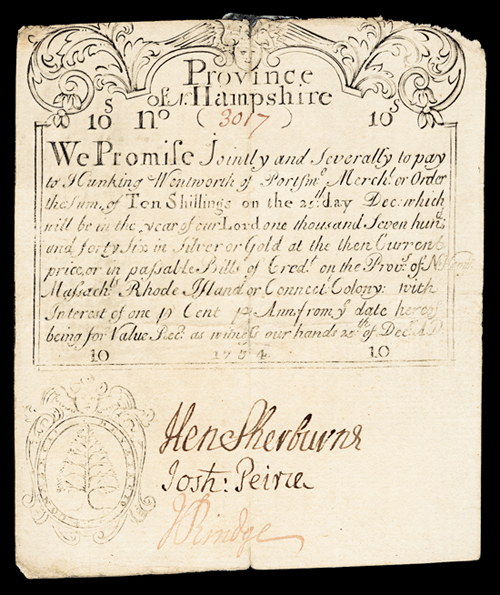 Province
of N. Hampshire
10s No (3017) 10s
We Promise Jointly and Severally to pay
to Hunking Wentworth of Portsmo. Mercht. or Order
the Sum, of Ten Shillings on the 25th day Dec: which
will be in the year of our Lord one thousand Seven hund
and forty Six in Silver or Gold at the then Current
price, or in passable Bills of Credt. on the Provs. of N
Massachy Rhode Island or Connect: Colony: with
Interest of one p Cent p. Ann: from ye date hereof
being for Value Rec: as witness our hands 25th of Dec: AD
10 1734 10
Hen Sherburne
Josh: Peirce
J Rindge